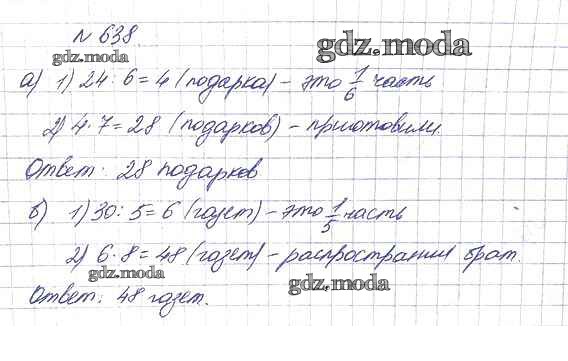 № 638
gdz.moda
gdz.moda
а) 1) 24 : 6 = 4 (подарка) – это 1/6 часть
2) 4 · 7 = 28 (подарков) – приготовили.
Ответ: 28 подарков
б) 1) 30 : 5 = 6 (газет) – это 1/5 часть
2) 6 · 8 = 48 (газет) – распространил брат.
gdz.moda
gdz.moda
Ответ: 48 газет.